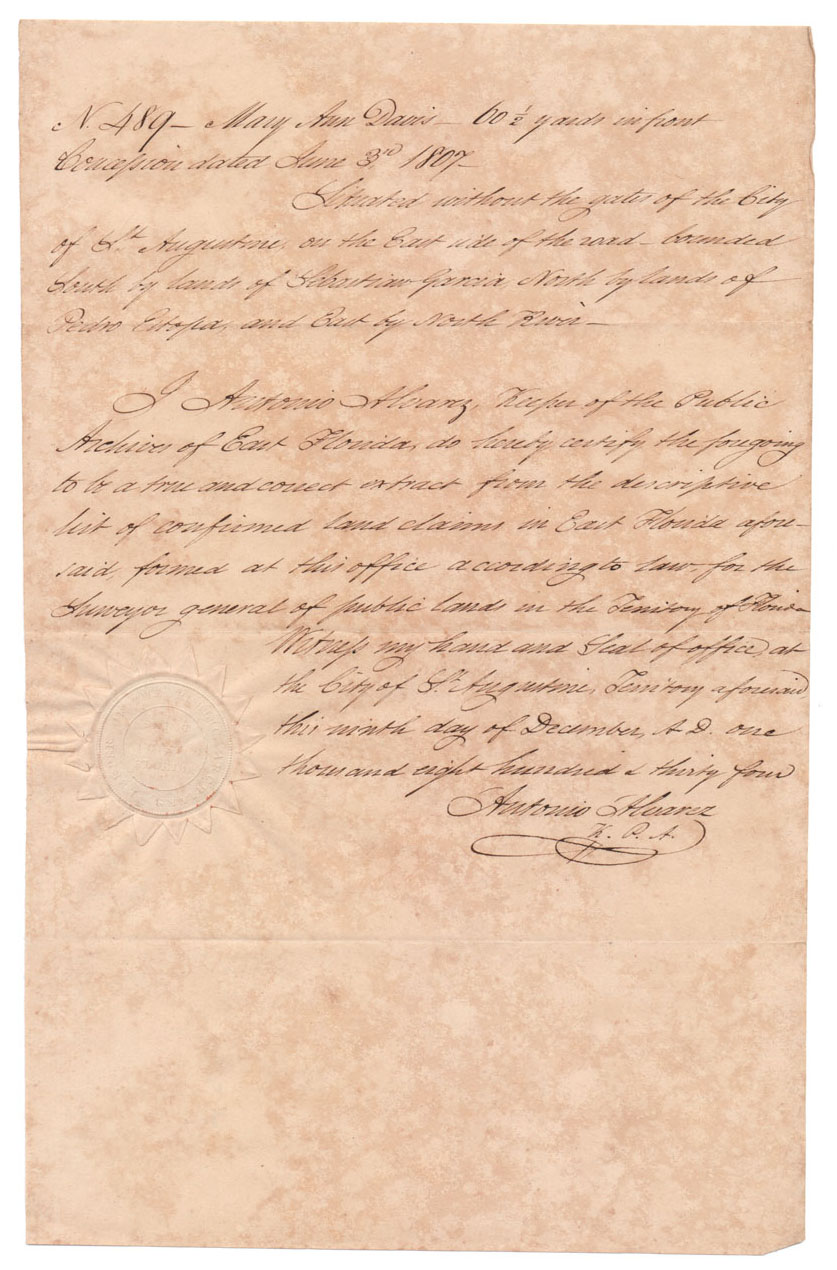 N. 489 - Mary Ann Davis - 60 1/2 yards in front
Concession dated June 3rd 1807 -
Situated without the gates of the City
of St. Augustine, on the East side of the road - bounded
South by lands of Sebastian Garcia, North by lands of
Pedro Estopa, and East by North River -
I Antonio Alvarez, Keeper of the Public
Archives of East Florida, do hereby certify the foregoing
to be a true and correct extract from the descriptive
list of confirmed land claims in East Florida afore-
said, formed at this office according to law, for the
Surveyor general of public lands in the Territory of Florida
Witness my hand and Seal of office, at
the City of St. Augustine, Territory aforesaid
this ninth day of December, A.D. one
thousand eight hundred & thirty four
Antonio Alvarez
K. P. A.